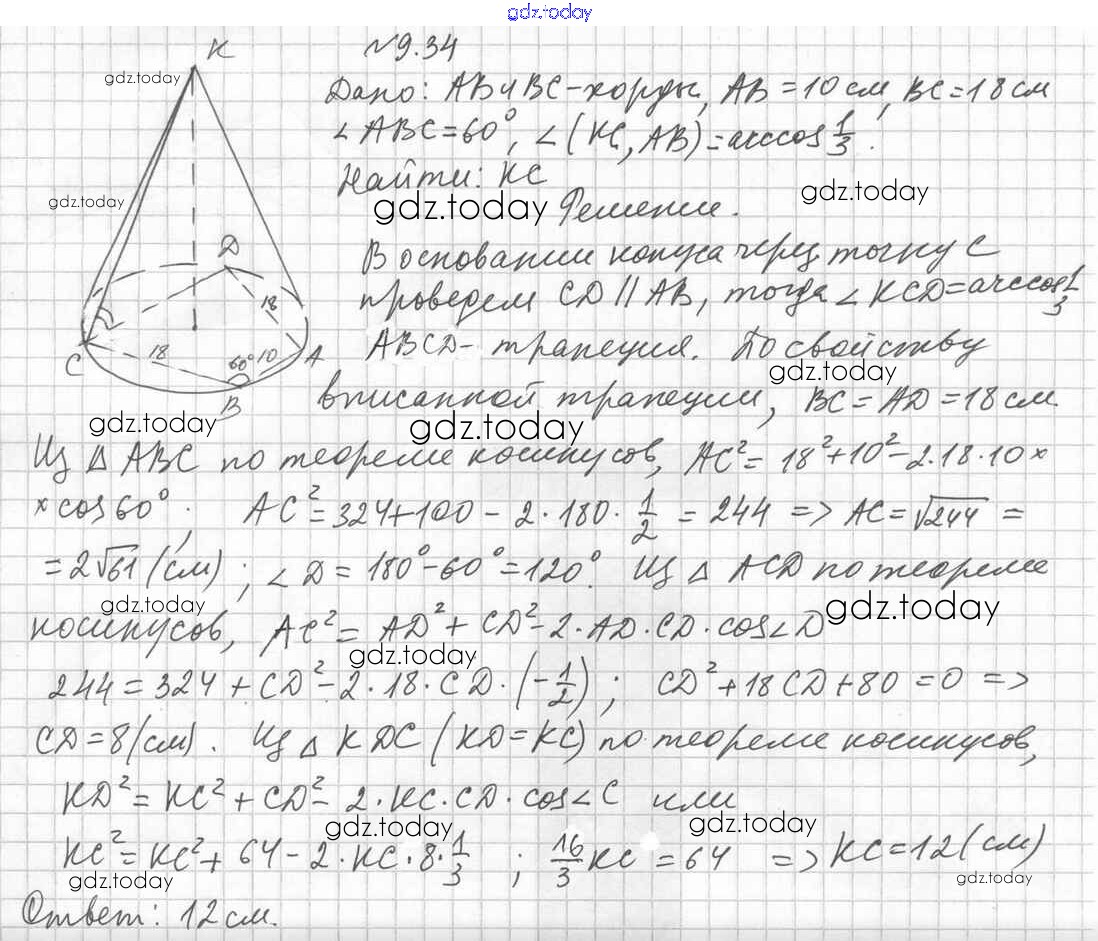 gdz.today
№9.34
K
gdz.today
Дано: AB и BC - хорды, AB = 10 см, BC = 18 см
∠ABC = 60°, ∠(KC, AB) = arccos 1/3.
Найти: KC
gdz.today
gdz.today
gdz.today
Решение.
D
В основании конуса через точку C
проведем CD || AB, тогда ∠KCD = arccos 1/3
18
C 18 60° 10 A
B
ABCD - трапеция. По свойству
gdz.today
вписанной трапеции, BC = AD = 18 см.
gdz.today
gdz.today
Из △ ABC по теореме косинусов, AC² = 18² + 10² - 2·18·10 ×
× cos 60°; AC² = 324 + 100 - 2·180·1/2 = 244 => AC = √244 =
= 2√61 (см); ∠D = 180° - 60° = 120°. Из △ ACD по теореме
gdz.today
gdz.today
косинусов, AC² = AD² + CD² - 2·AD·CD·cos∠D
gdz.today
244 = 324 + CD² - 2·18·CD·(-1/2); CD² + 18CD + 80 = 0 =>
CD = 8 (см). Из △ KDC (KD = KC) по теореме косинусов,
KD² = KC² + CD² - 2·KC·CD·cos∠C или
gdz.today
gdz.today
KC² = KC² + 64 - 2·KC·8·1/3; 16/3 KC = 64 => KC = 12 (см)
gdz.today
gdz.today
Ответ: 12 см.